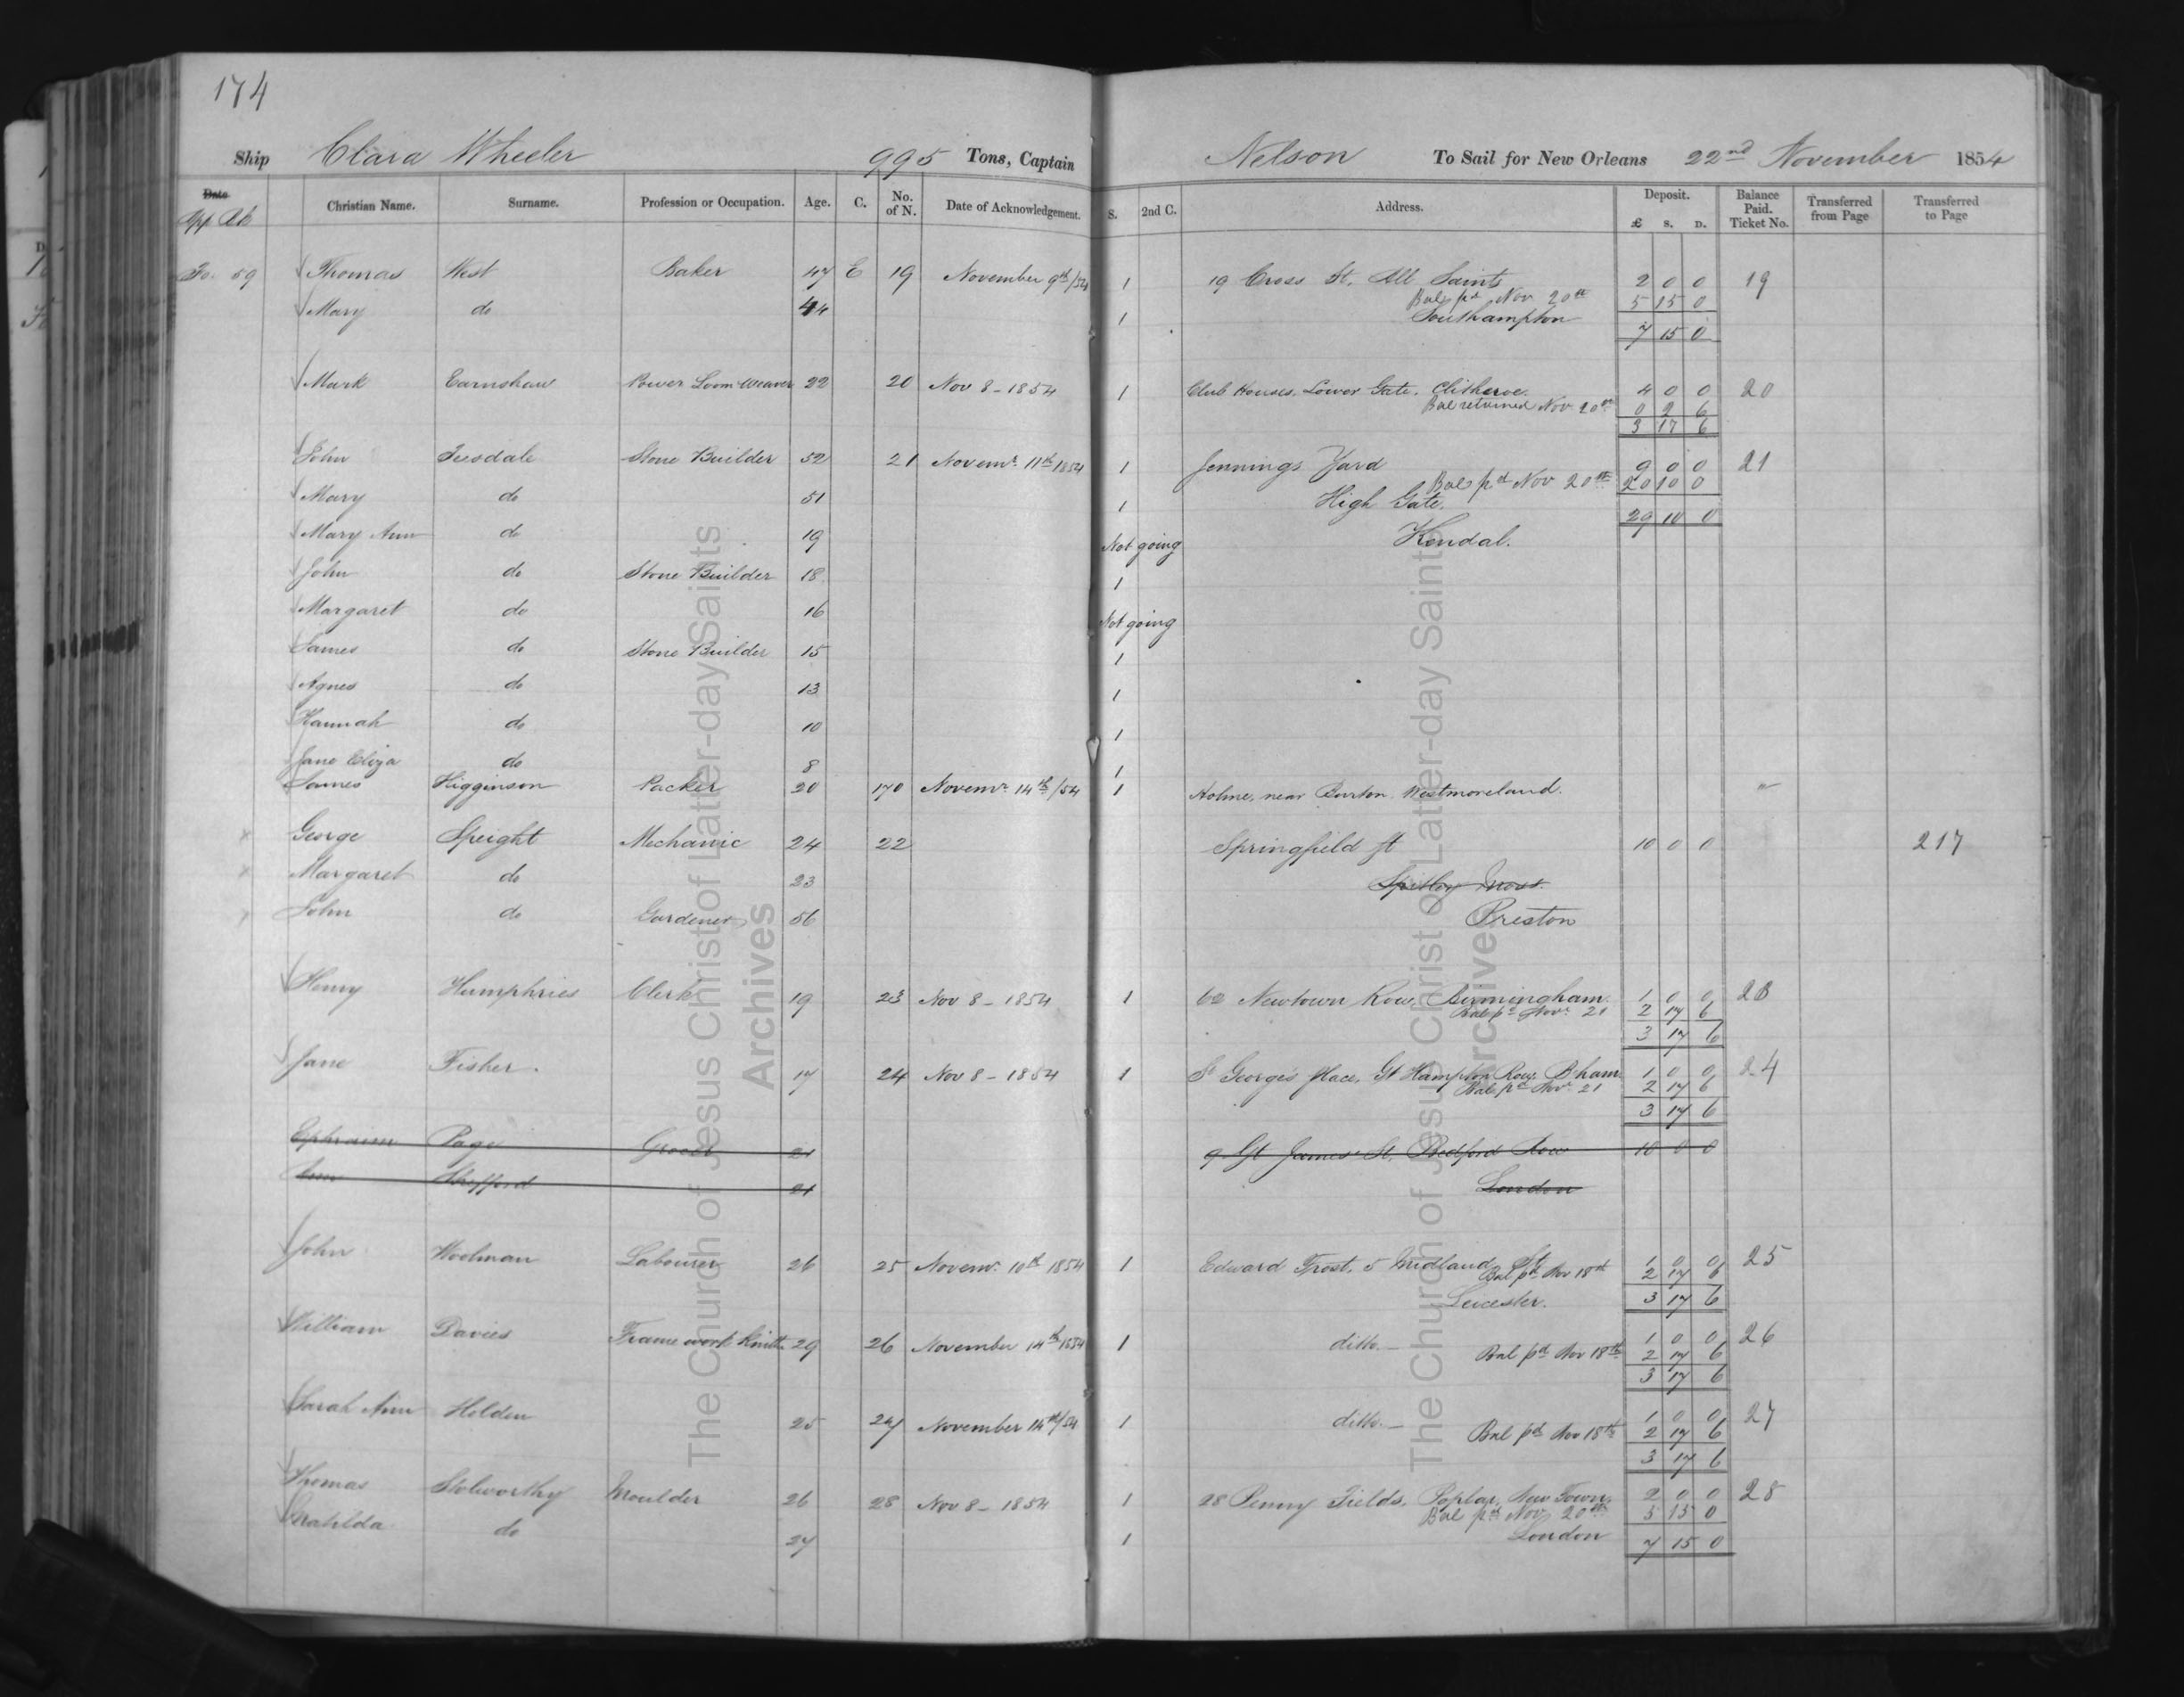 174
Ship Clara Wheeler 995 Tons, Captain Nelson To Sail for New Orleans 22nd November 1854
Date Christian Name. Surname. Profession or Occupation. Age. C. No. of N. Date of Acknowledgement. S. 2nd C. Address. Deposit. £ S. D. Balance Paid. Ticket No. Transferred from Page Transferred to Page
Fo. 59 Thomas West Baker 47 E 19 November 9th/54 1 19 Cross St. All Saints 2 0 0 19
Bal pd Nov 20th 5 15 0
Mary do 44 1 Southampton
7 15 0
Mark Earnshaw Power Loom Weaver 22 20 Nov 8 - 1854 1 Club Houses, Lower Gate, Clitheroe. 4 0 0 20
Bal returned Nov 20th 0 2 6
3 17 6
John Teesdale Stone Builder 52 21 Novemr. 11th 1854 1 Jennings Yard 9 0 0 21
Bal pd Nov 20th 20 10 0
Mary do 51 1 High Gate,
29 10 0
Mary Ann do 19 Not going Kendal.
John do Stone Builder 18 1
Margaret do 16 Not going
James do Stone Builder 15 1
Agnes do 13 1
Hannah do 10 1
Jane Eliza do 8 1
James Higginson Packer 20 170 Novemr. 14th/54 1 Holme, near Burton, Westmoreland. "
George Speight Mechanic 24 22 Springfield St 10 0 0 217
Margaret do 23 Moss.
John do Gardener 56 Preston
Henry Humphries Clerk 19 23 Nov 8 - 1854 1 62 Newtown Row, Birmingham. 1 0 0 23
Bal pd Novr 21 2 17 6
3 17 6
Jane Fisher. 17 24 Nov 8 - 1854 1 St George's place, Gt Hampton Row, B'ham. 1 0 0 24
Bal pd Novr 21 2 17 6
3 17 6
Ephraim Page Grocer 21 9 Gt James' St, Bedford Row 10 0 0
Ann Shefford 21 London
John Woolman Labourer 26 25 Novemr. 10th 1854 1 Edward Frost, 5 Midland St 1 0 0 25
Bal pd Nov 18th 2 17 6
Leicester. 3 17 6
William Davies Frame work Knitter 29 26 November 14th 1854 1 ditto. 1 0 0 26
Bal pd Nov 18th 2 17 6
3 17 6
Sarah Ann Holden 25 27 November 14th/54 1 ditto. 1 0 0 27
Bal pd Nov 18th 2 17 6
3 17 6
Thomas Stolworthy Moulder 26 28 Nov 8 - 1854 1 28 Penny Fields, Poplar, New Town, 2 0 0 28
Bal pd Nov 20th 5 15 0
Matilda do 27 1 London
7 15 0
The Church of Jesus Christ of Latter-day Saints
Archives
The Church of Jesus Christ of Latter-day Saints
Archives